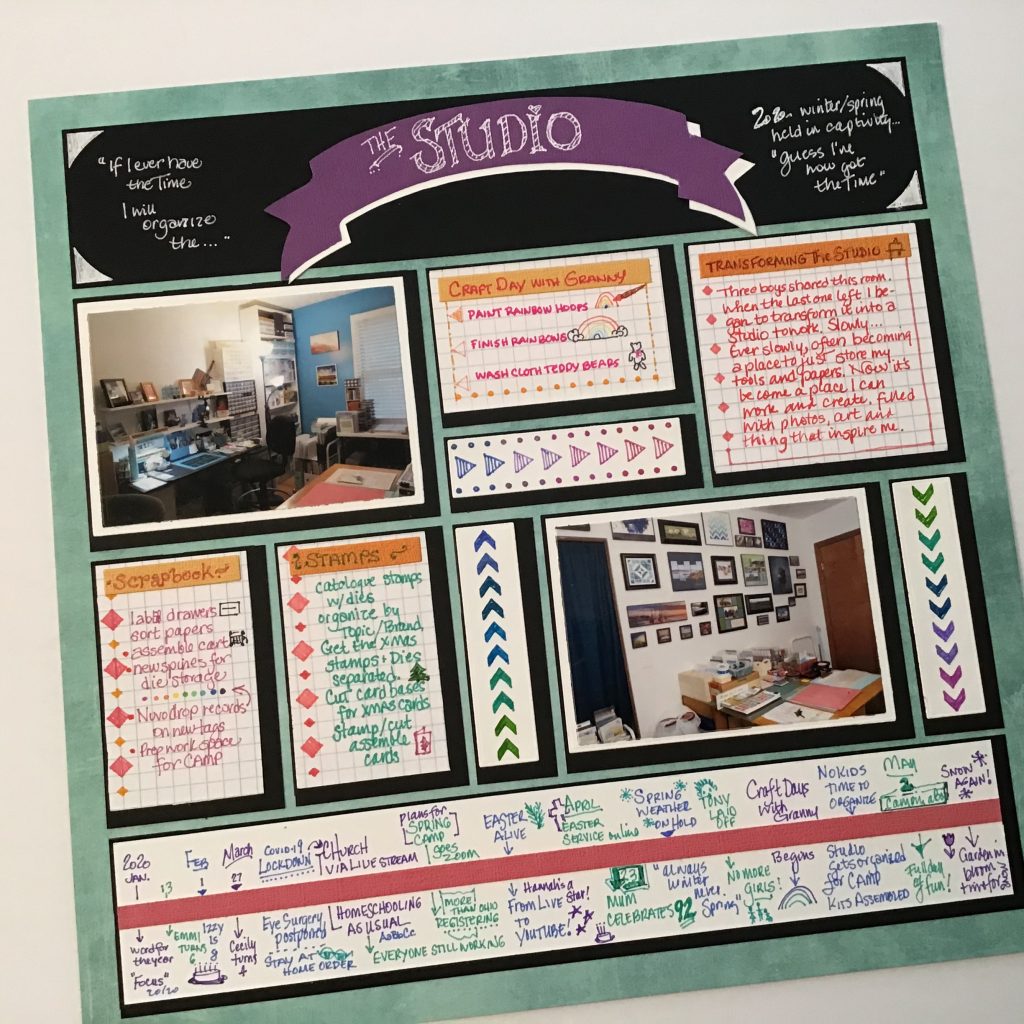 THE STUDIO
"If I ever have
the Time
I will
organize
the..."
2020 winter/spring
held in captivity...
"Guess I've
now got
the Time"
CRAFT DAY WITH GRANNY
PAINT RAINBOW HOOPS
FINISH RAINBOWS
WASH CLOTH TEDDY BEARS
TRANSFORMING the STUDIO
Three boys shared this room.
When the last one left I be-
gan to transform it into a
studio to work. Slowly...
Ever slowly, often becoming
a place to just store my
tools and papers. Now it's
become a place I can
work and create, filled
with photos, art and
thing that inspire me.
SCRAPBOOK
label drawers
sort papers
assemble cart
new spines for
die storage
Nuvo drop records
on new tags
Prep work space
for CAMP
STAMPS
catologue stamps
w/dies
organize by
Topic/Brand,
Get the xmas
stamps + Dies
separated.
Cut card bases
for xmas cards
Stamp/cut
assemble
cards
2020
JAN.
13
Feb
1
March
27
COVID-19
LOCKDOWN
CHURCH
VIA LIVE STREAM
Plans for
SPRING
CAMP
goes
ZOOM
EASTER
ALIVE
APRIL
EASTER
SERVICE online
SPRING
WEATHER
ON HOLD
TONY
LAID
OFF
Craft Days
with
Granny
NO KIDS
TIME TO
ORGANIZE
MAY
2
SNOW
AGAIN!
word for
the year
"Focus"
20/20
EMMI
TURNS
6
IZZY
IS
8
Cecily
turns
4
Eye Surgery
postponed
STAY AT
HOME ORDER
HOMESCHOOLING
AS USUAL
AaBbCc
MORE!
THAN OHIO
REGISTERING
EVERYONE STILL WORKING
Hannah is a
From Live Star!
to
YOUTUBE!
23
MUM
CELEBRATES 92
"always
winter
never
Spring"
NO MORE
GIRLS!
Begins
Studio
gets organized
for CAMP
KITS ASSEMBLED
Full day
of fun!
Garden in
bloom